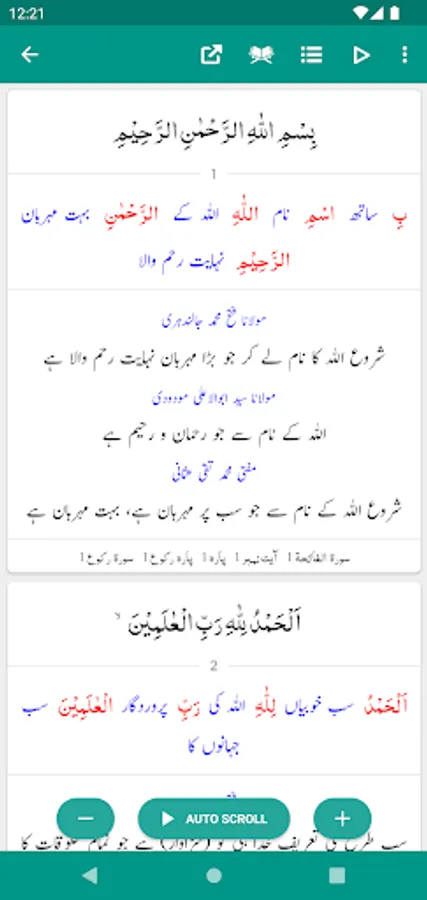 12:21
بِسْمِ اللّٰهِ الرَّحْمٰنِ الرَّحِیْمِ
1
بِ ساتھ اسْمِ نام اللّٰهِ اللہ کے الرَّحْمٰنِ بہت مہربان
الرَّحِیْمِ نہایت رحم والا
مولانا فتح محمد جالندہری
شروع اللہ کا نام لے کر جو بڑا مہربان نہایت رحم والا ہے
مولانا سید ابوالاعلیٰ مودودی
اللہ کے نام سے جو رحمان و رحیم ہے
مفتی محمد تقی عثمانی
شروع اللہ کے نام سے جو سب پر مہربان ہے، بہت مہربان ہے
سورۃ الفاتحۃ 1 آیت نمبر 1 پارہ 1 پارہ رکوع 1 سورۃ رکوع 1
اَلْحَمْدُ لِلّٰهِ رَبِّ الْعٰلَمِیْنَ ۙ
2
اَلْحَمْدُ سب خوبیاں لِلّٰهِ اللہ کی رَبِّ پروردگار الْعٰلَمِیْنَ سب
جہانوں کا
AUTO SCROLL
سب طرح کی تعریف خدا ہی کو (سزاوار) ہے جو تمام مخلوقات کا